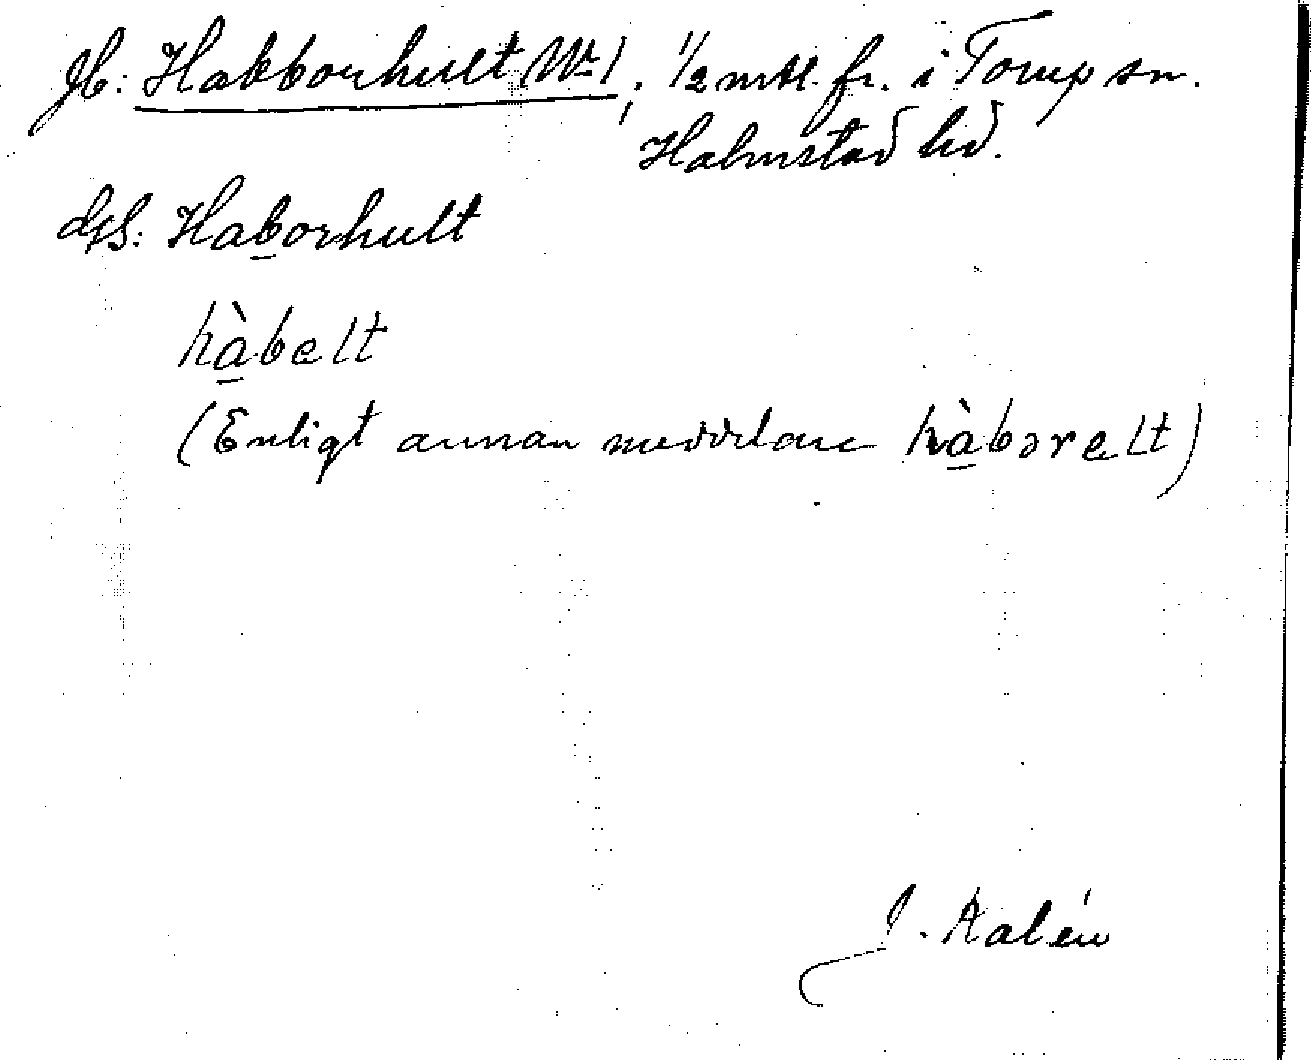 Jb: Habborhult No 1, 1/2 mtl. fr. i Torup sn.
Halmstad hd.
GS: Haborhult
hàbelt
(Enligt annan meddelare hàbɘrelt)
J. Kalén